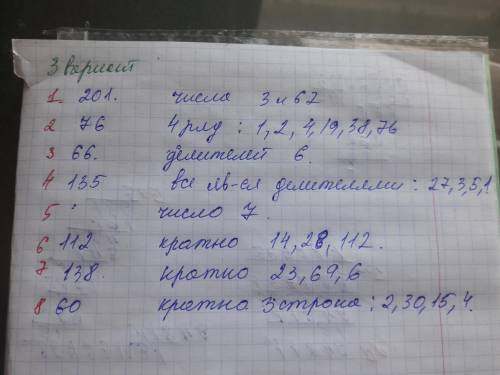 3 вариант
1. 201. числа 3 и 67
2 76 4 ряд : 1, 2, 4, 19, 38, 76
3 66. делителей 6.
4 135 все яв-ся делителями : 27, 3, 5, 1
5 : число 7.
6 112 кратно 14, 28, 112.
7 138. кратно 23, 69, 6
8 60 кратна 3 строка : 2, 30, 15, 4.